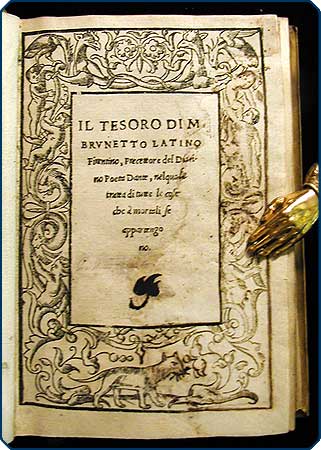 IL TESORO DI M.
BRVNETTO LATINO
Fiorentino, Precettore del Diui-
no Poeta Dante, nelqual si
tratta di tutte le cose
che à mortali se
appartengo
no.